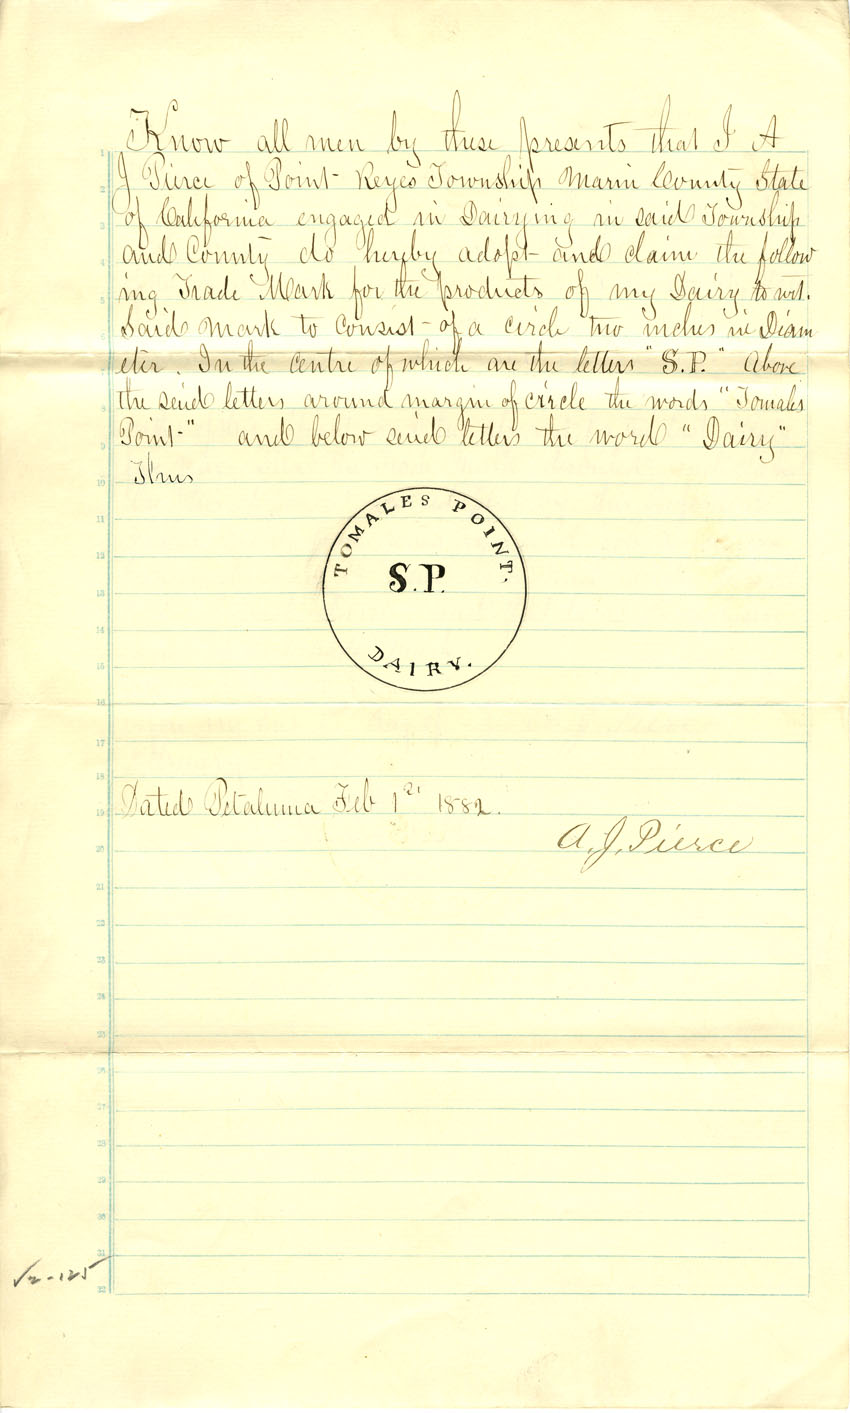 Know all men by these presents that I A
J Pierce of Point Reyes Township Marin County State
of California engaged in Dairying in said Township
and County do hereby adopt and claim the follow
ing Trade Mark for the products of my Dairy to wit.
Said Mark to consist of a circle two inches in Diam
eter. In the centre of which are the letters "S.P." Above
the said letters around margin of circle the words "Tomales
Point" and below said letters the word "Dairy"
Thus
TOMALES POINT.
S.P.
DAIRY.
Dated Petaluma Feb 1st 1882.
A. J. Pierce
1
2
3
4
5
6
7
8
9
10
11
12
13
14
15
16
17
18
19
20
21
22
23
24
25
26
27
28
29
30
31
32